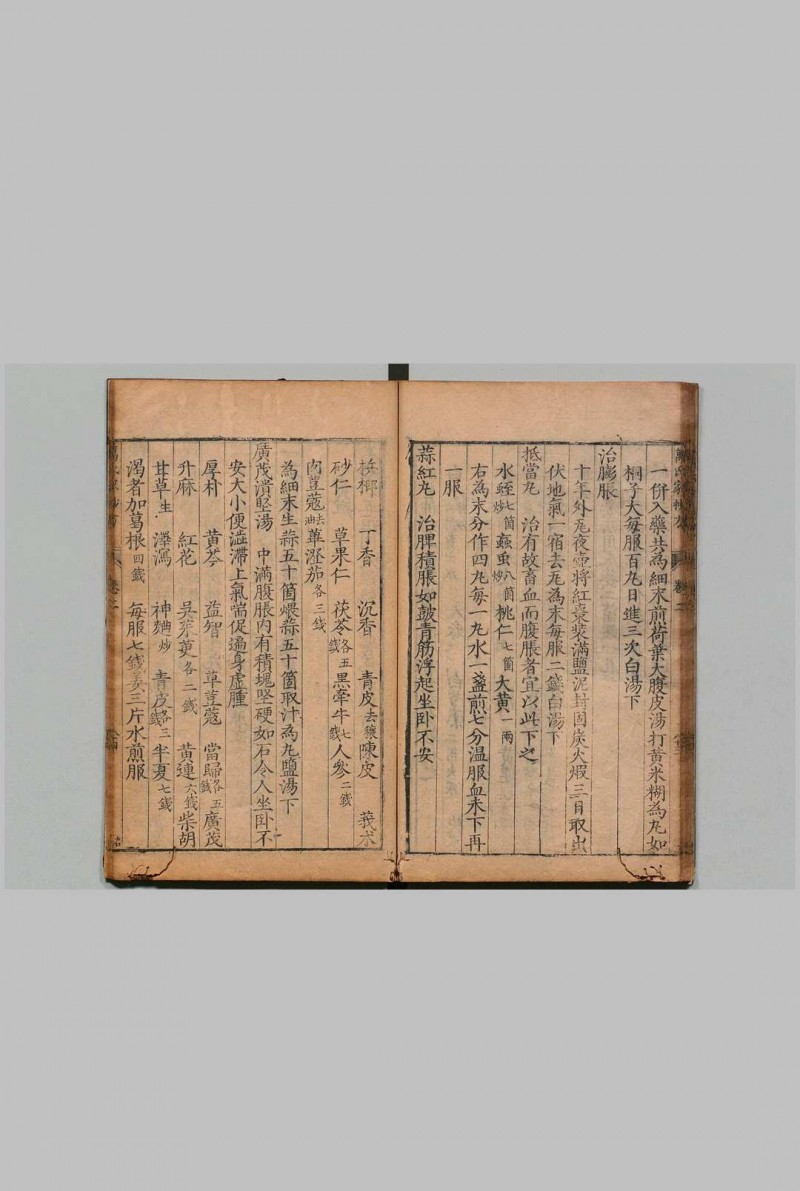 一併入藥共為細末煎荷葉大腹皮湯打黃米糊為丸如
桐子大每服百丸日進三次白湯下
治膨脹
十年外尿夜壺將紅棗裝滿鹽泥封固炭火煆三日取出
伏地氣一宿去尾為末每服二錢白湯下
抵當丸 治有故畜血而腹脹者宜以此下之
水蛭七箇炒 蝱虫八箇炒 桃仁七箇 大黃一兩
右為末分作四丸每一丸水一盞煎七分温服血未下再
一服
蒜紅丸 治脾積脹如皷青筋浮起坐卧不安
檳榔 丁香 沉香 青皮去穰 陳皮 莪朮
砂仁 草果仁 茯苓各五錢 黑牽牛七錢 人參二錢
肉荳蔻去油 蓽澄茄各三錢
為細末生蒜五十箇煨蒜五十箇取汁為丸鹽湯下
廣茂潰堅湯 中滿腹脹內有積塊堅硬如石令人坐卧不
安大小便澁滯上氣喘促遍身虛腫
厚朴 黃芩 益智 草荳蔻 當歸各五錢 廣茂
升麻 紅花 吳茱萸各二錢 黃連六錢 柴胡
甘草生 澤瀉 神麯炒 青皮各三錢 半夏七錢
渴者加葛根四錢 每服七錢姜三片水煎服